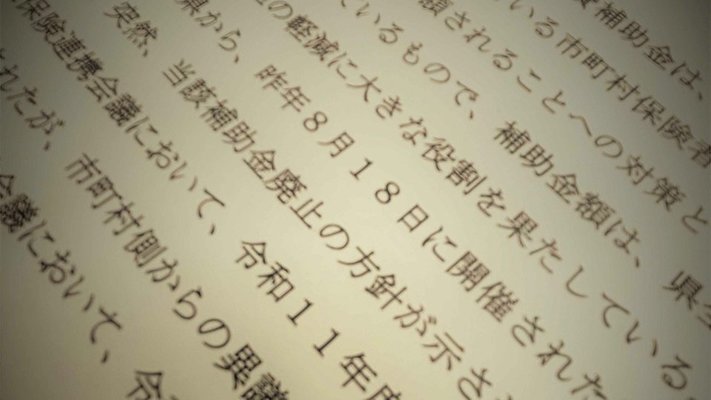 補助金は、
いる市町村保険者
されることへの対策と
ているもので、補助金額は、県全
の軽減に大きな役割を果たしている
県から、昨年８月１８日に開催された
突然、当該補助金廃止の方針が示さ
保険連携会議において、令和１１年度
れたが、市町村側からの異議
会議において、令